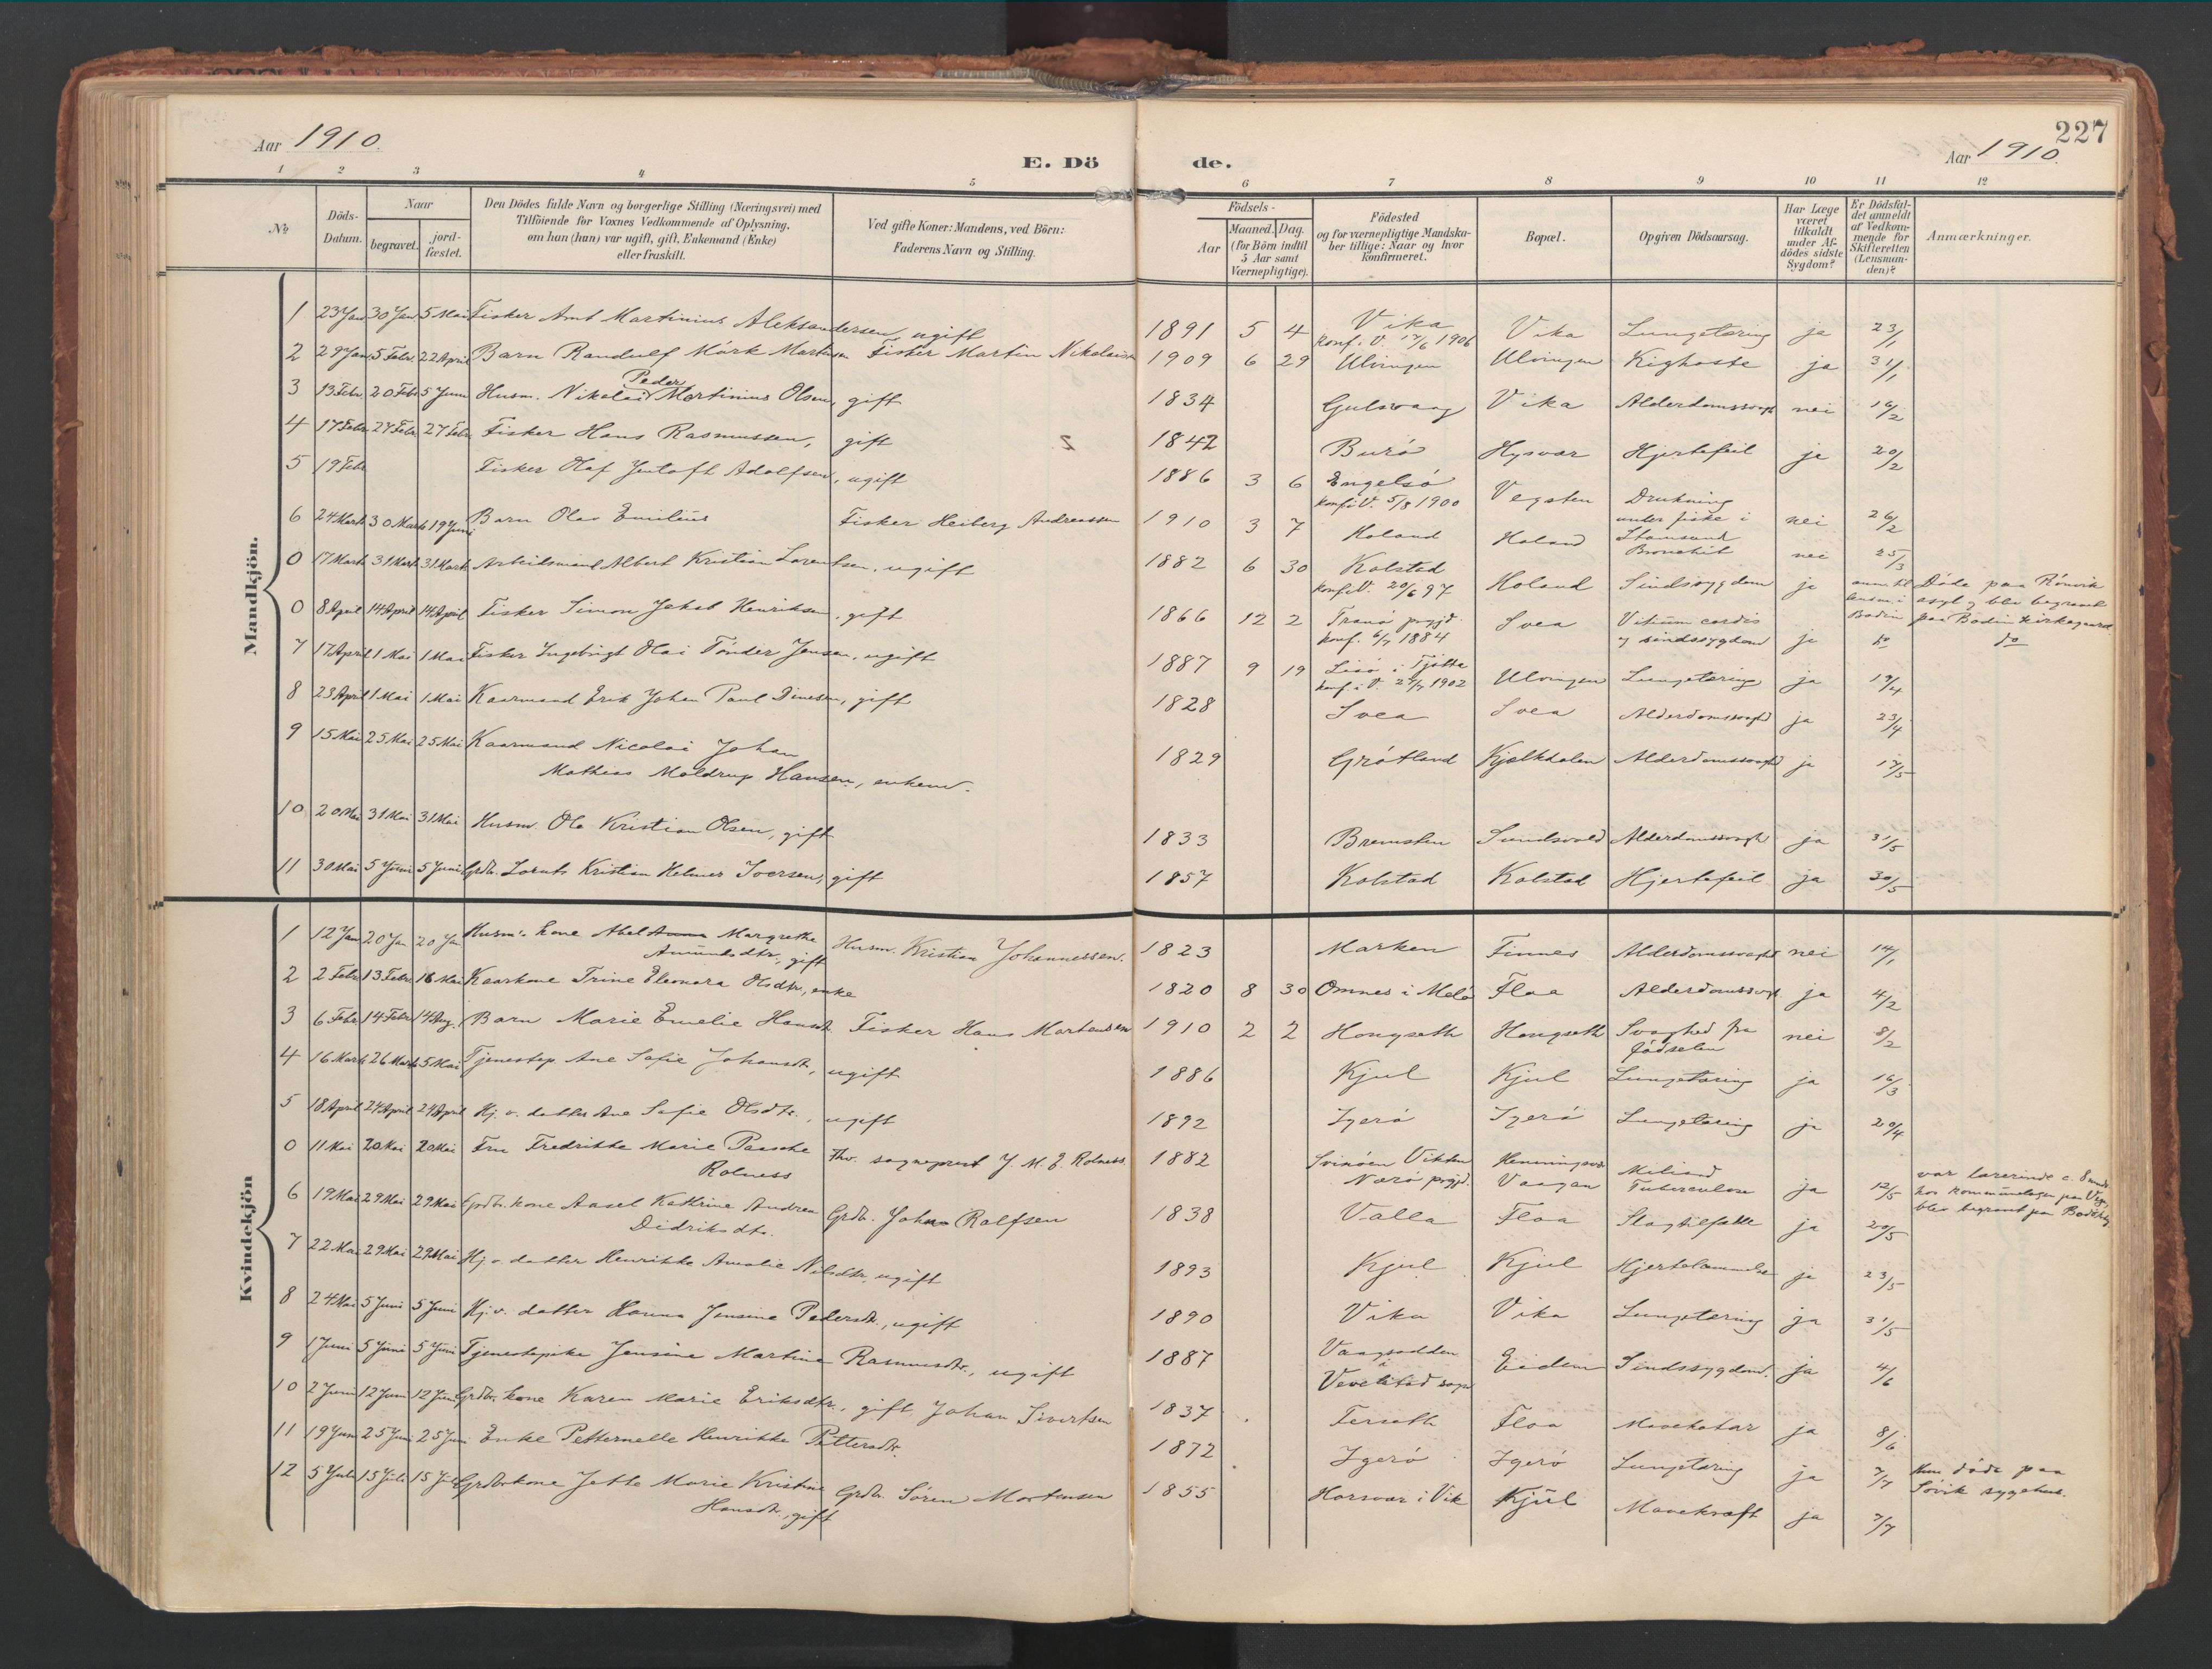 227
Aar 1910.
E. Dö de.
Aar 1910.
1 2 3 4 5 6 7 8 9 10 11 12
No
Döds-Datum.
Naar
begravet.
jord-fæstet.
Den Dödes fulde Navn og borgerlige Stilling (Næringsvei) med
Tilföiende for Voxnes Vedkommende af Oplysning,
om han (hun) var ugift, gift, Enkemand (Enke)
eller fraskilt.
Ved gifte Koner: Mandens, ved Börn:
Faderens Navn og Stilling.
Födsels-
Aar
Maaned. Dag.
(for Börn indtil
5 Aar samt
Værnepligtige).
Födested
og for værnepligtige Mandska-
ber tillige: Naar og hvor
konfirmeret.
Bopæl.
Opgiven Dödsaarsag.
Har Læge
været
tilkaldt
under Af-
dödes sidste
Sygdom?
Er Dödsfal-
det anmeldt
af Vedkom-
mende for
Skifteretten
(Lensman-
den)?
Anmærkninger.
Mandkjön.
1 23 Jan 30 Jan 5 Mai Fisker Arnt Martinius Aleksandersen, ugift 1891 5 4 Vika konf. i V. 17/6 1906 Vika Lungetæring ja 23/1
2 29 Jan 5 Febr. 22 April Barn Randulf Mörk Martinsen Fisker Martin Nikolaisen 1909 6 29 Ulvingen Ulvingen Kighoste ja 31/1
3 13 Febr. 20 Febr 5 Juni Husm. Nikolai Peder Martinius Olsen, gift 1834 Gulsvaag Vika Alderdomssvagh nei 16/2
4 17 Febr 27 Febr 27 Febr Fisker Hans Rasmussen, gift 1842 Burö Hysvær Hjertefeil ja 20/2
5 19 Febr Fisker Olaf Jentoft Adolfsen, ugift 1886 3 6 Engelsö konf i V. 5/8 1900 Vegsten Drukning under fiske i Stamsund nei 26/2
6 24 Marts 30 Marts 19 Juni Barn Olav Emilius Fisker Heiberg Andreassen 1910 3 7 Holand Holand Bronchit nei 25/3
0 17 Marts 31 Marts 31 Marts Arbeidsmand Albert Kristian Lorentsen, ugift 1882 6 30 Kolstad konf i V. 20/6 97 Holand Sindssygdom ja anm. til lensm. i Bodin Döde paa Rönvik asyl og blev begravet paa Bodin kirkegaard
0 8 April 14 April 14 April Fisker Simon Jakob Henriksen, gift 1866 12 2 Tranö prgjd. konf. 6/7 1884 Svea Vitium cordis og sindssygdom ja do do
7 17 April 1 Mai 1 Mai Fisker Ingebrigt Olai Tönder Jensen, ugift 1887 9 19 i Tjötta konf. i V. 27/7 1902 Ulvingen Lungetæring ja 19/4
8 23 April 1 Mai 1 Mai Kaarmand Erik Johan Paul Dinesen, gift 1828 Svea Svea Alderdomssvaghd ja 23/4
9 15 Mai 25 Mai 25 Mai Kaarmand Nicolai Johan
Mathias Moldrup Hansen, enkem. 1829 Grötland Kjælkdalen Alderdomssvaghd ja 17/5
10 20 Mai 31 Mai 31 Mai Husm. Ole Kristian Olsen, gift 1833 Bremsten Sundsvold Alderdomssvagh ja 31/5
11 30 Mai 5 Juni 5 Juni Grdbr. Lornts Kristian Helmer Iversen, gift 1857 Kolstad Kolstad Hjertefeil ja 30/5
Kvindekjön
1 12 Jan 20 Jan 20 Jan Husm.s kone Abel Anna Margrethe
Amundsdtr., gift Husm. Kristian Johannessen. 1823 Marken Finnes Alderdomssvaghd nei 14/1
2 2 Febr 13 Febr 16 Mai Kaarkone Trine Eleonora Olsdtr., enke 1820 8 30 Omnes i Melö Floa Alderdomssvagh ja 4/2
3 6 Febr 14 Febr 14 Aug. Barn Marie Emelie Hansdtr. Fisker Hans Martensen 1910 2 2 Hongseth Hongseth Svaghed fra födselen nei 8/2
4 16 Marts 26 Marts 5 Mai Tjenestep. Ane Sofie Johansdtr., ugift 1886 Kjul Kjul Lungetæring ja 16/3
5 18 April 24 April 24 April Hj. v. datter Ane Sofie Olsdtr., ugift 1892 Igerö Igerö Lungetæring ja 20/4
0 11 Mai 20 Mai 20 Mai Fru Fredrikke Marie Paasche
Rolness Fhv. sogneprest J. M. E. Rolness. 1882 Svinöen Vikten Nærö prgjd. Henningsvær Vaagan Miliær Tuberculose ja 12/5 var lærerinde c. 8 mndr hos kommunelægen paa Vega, blev begravet paa
6 19 Mai 29 Mai 29 Mai Grdbr. kone Aasel Kathrine Andrea
Didriksdtr. Grdbr. Johan Rolfsen 1838 Valla Floa Slagtilfælde ja 20/5
7 22 Mai 29 Mai 29 Mai Hj. v. datter Henrikke Amalie Nilsdtr, ugift 1893 Kjul Kjul Hjertelammelse ja 23/5
8 24 Mai 5 Juni 5 Juni Hj. v. datter Hanna Jensine Pedersdtr., ugift 1890 Vika Vika Lungetæring ja 31/5
9 1 Juni 5 Juni 5 Juni Tjenestepike Jensine Martine Rasmusdtr., ugift 1887 Vaagsodden i Vevelstad sogn Eidem Sindssygdom. ja 4/6
10 2 Juni 12 Juni 12 Juni Grdbr. kone Karen Marie Eriksdtr., gift Johan Sivertsen 1837 Forseth Floa Mavekatar ja 8/6
11 19 Juni 25 Juni 25 Juni Enke Petternelle Henrikke Pettersdtr. 1872 Igerö Igerö Lungetæring ja 7/7 Hun döde paa Sövik sygehus.
12 5 Juli 15 Juli 15 Juli Grdbrkone Jette Marie Kristine
Hansdtr., gift Grdbr. Sören Mortensen 1855 Horsvær i Vik Kjul Mavekræft ja 7/7